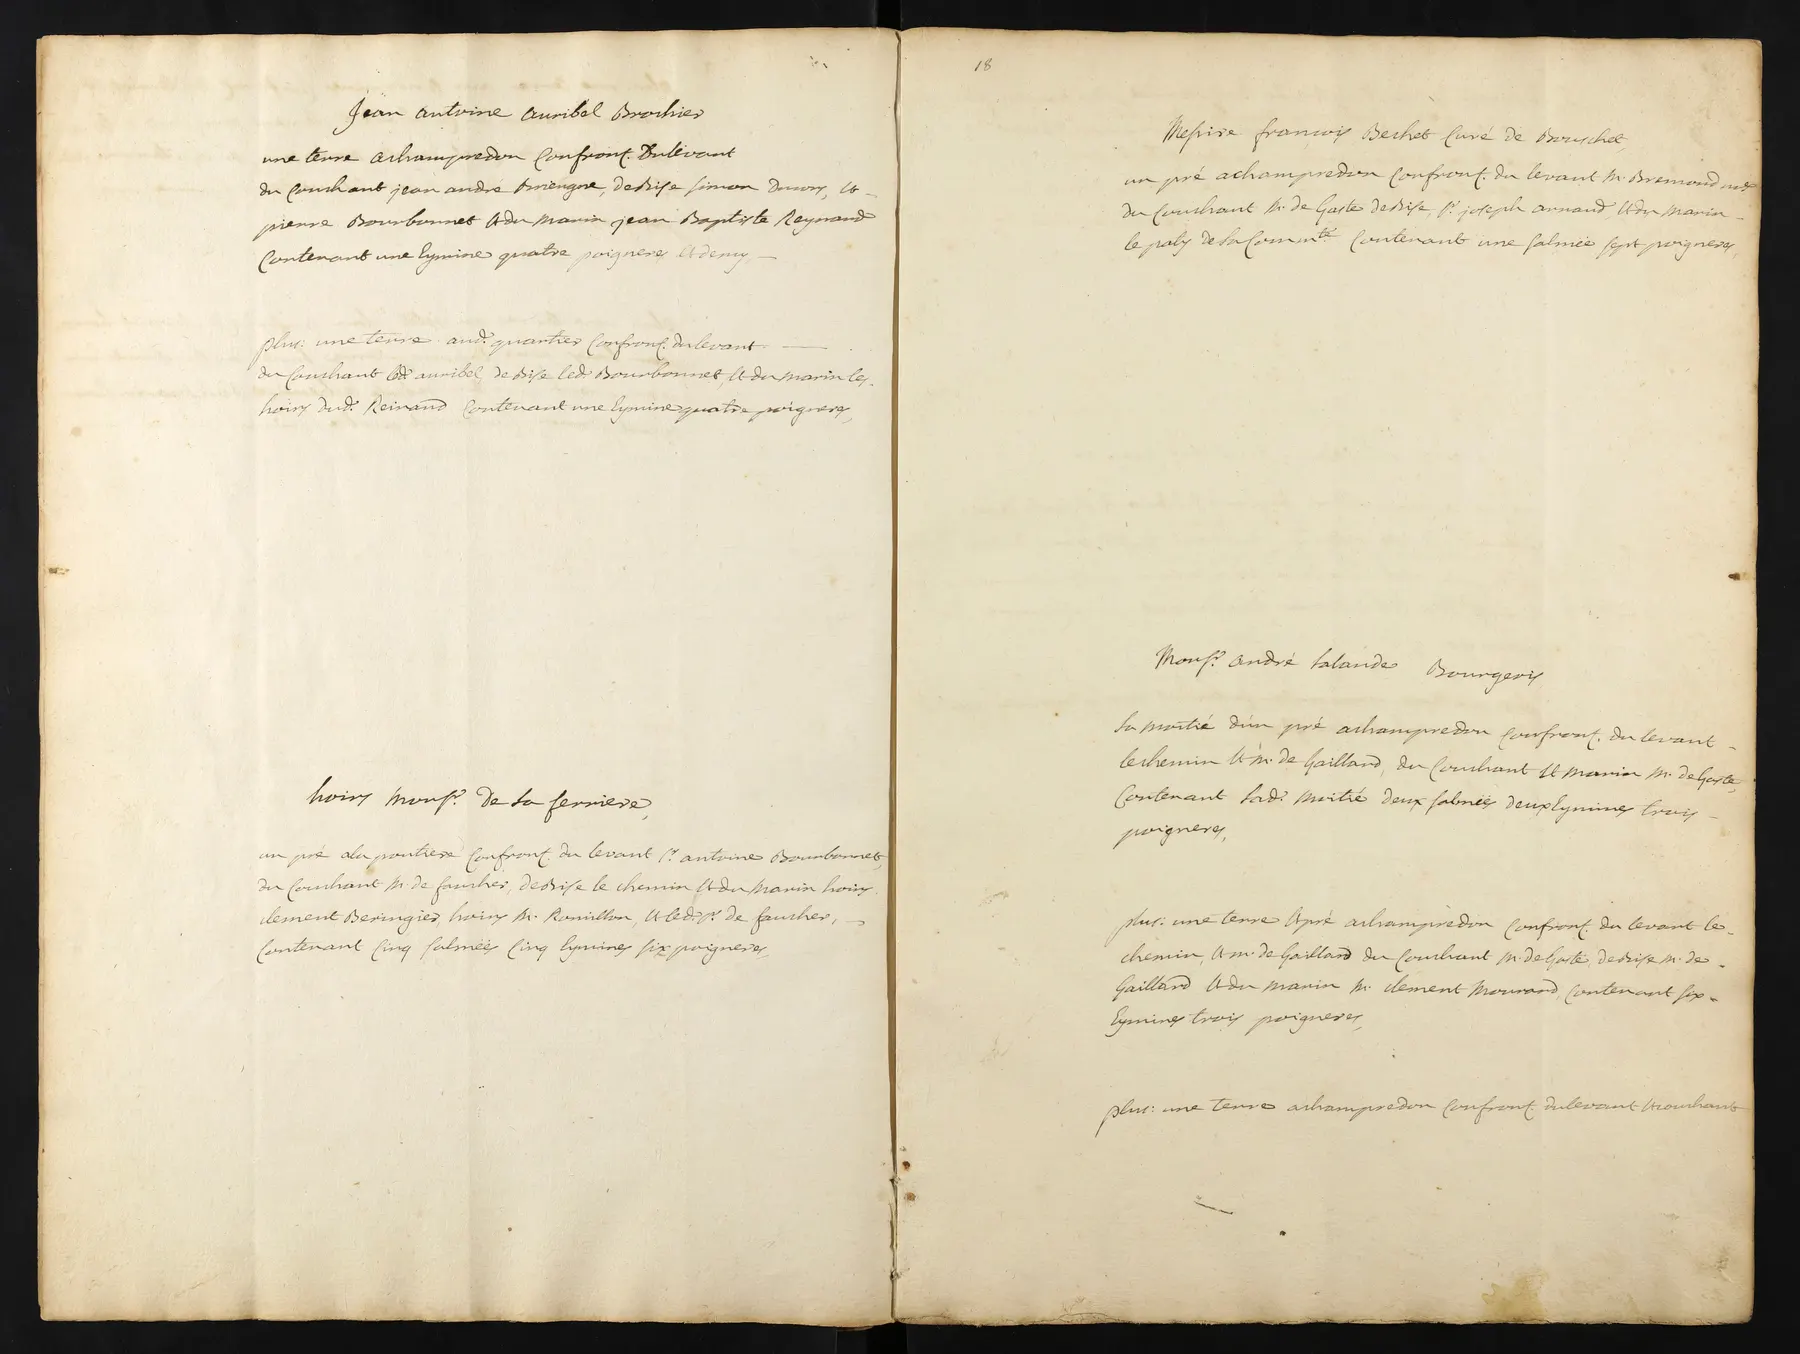 Jean antoine auribel Brochier
une terre achampredon Confront. Dulevant
du Couchant jean andré deBise simon et
pierre Bourbonnet et du marin jean Baptiste Reynaud
Contenant une Eymine quatre poigneres et demy
plus: une terre aud. quartier Confront. du levant
du Couchant led. auribel, de Bise led. Bourbonnet, et du marin les
hoirs dud. Reinaud Contenant une Eymine quatre poigneres,
hoirs Monsr. De La ferriere,
un pré ala poutiere Confront. du levant sr. antoine Bourbonnet,
du Couchant M. de faucher, de Bise le chemin et du Marin hoirs
clement Beringier, hoirs M. Rouillon, et led. sr. de faucher,
Contenant Cinq salmées Cinq Eymines six poigneres,
18
Messire françois Bechet Curé de Bouchet,
un pré achampredon Confront. du levant M. Bremond
du Couchant M. de Gaste de Bise, sr. joseph arnaud, et du marin
le paty de la Commté. Contenant une salmée sept poigneres,
Monsr. andré Lalande Bourgeois
La moitié d'un pré achampredon Confront. du levant
le chemin et M. de Gaillard, du Couchant et marin M. de Gaste,
Contenant Lad. Moitié deux salmées deux Eymines trois
poigneres,
plus: une terre et pré achampredon Confront. du levant le
chemin, et M. de Gaillard du Couchant M. de Gaste, de Bise M. de
Gaillard et du marin M. clement Mourard, Contenant six
Eymines trois poigneres,
plus: une terre achampredon Confront. du levant et couchant